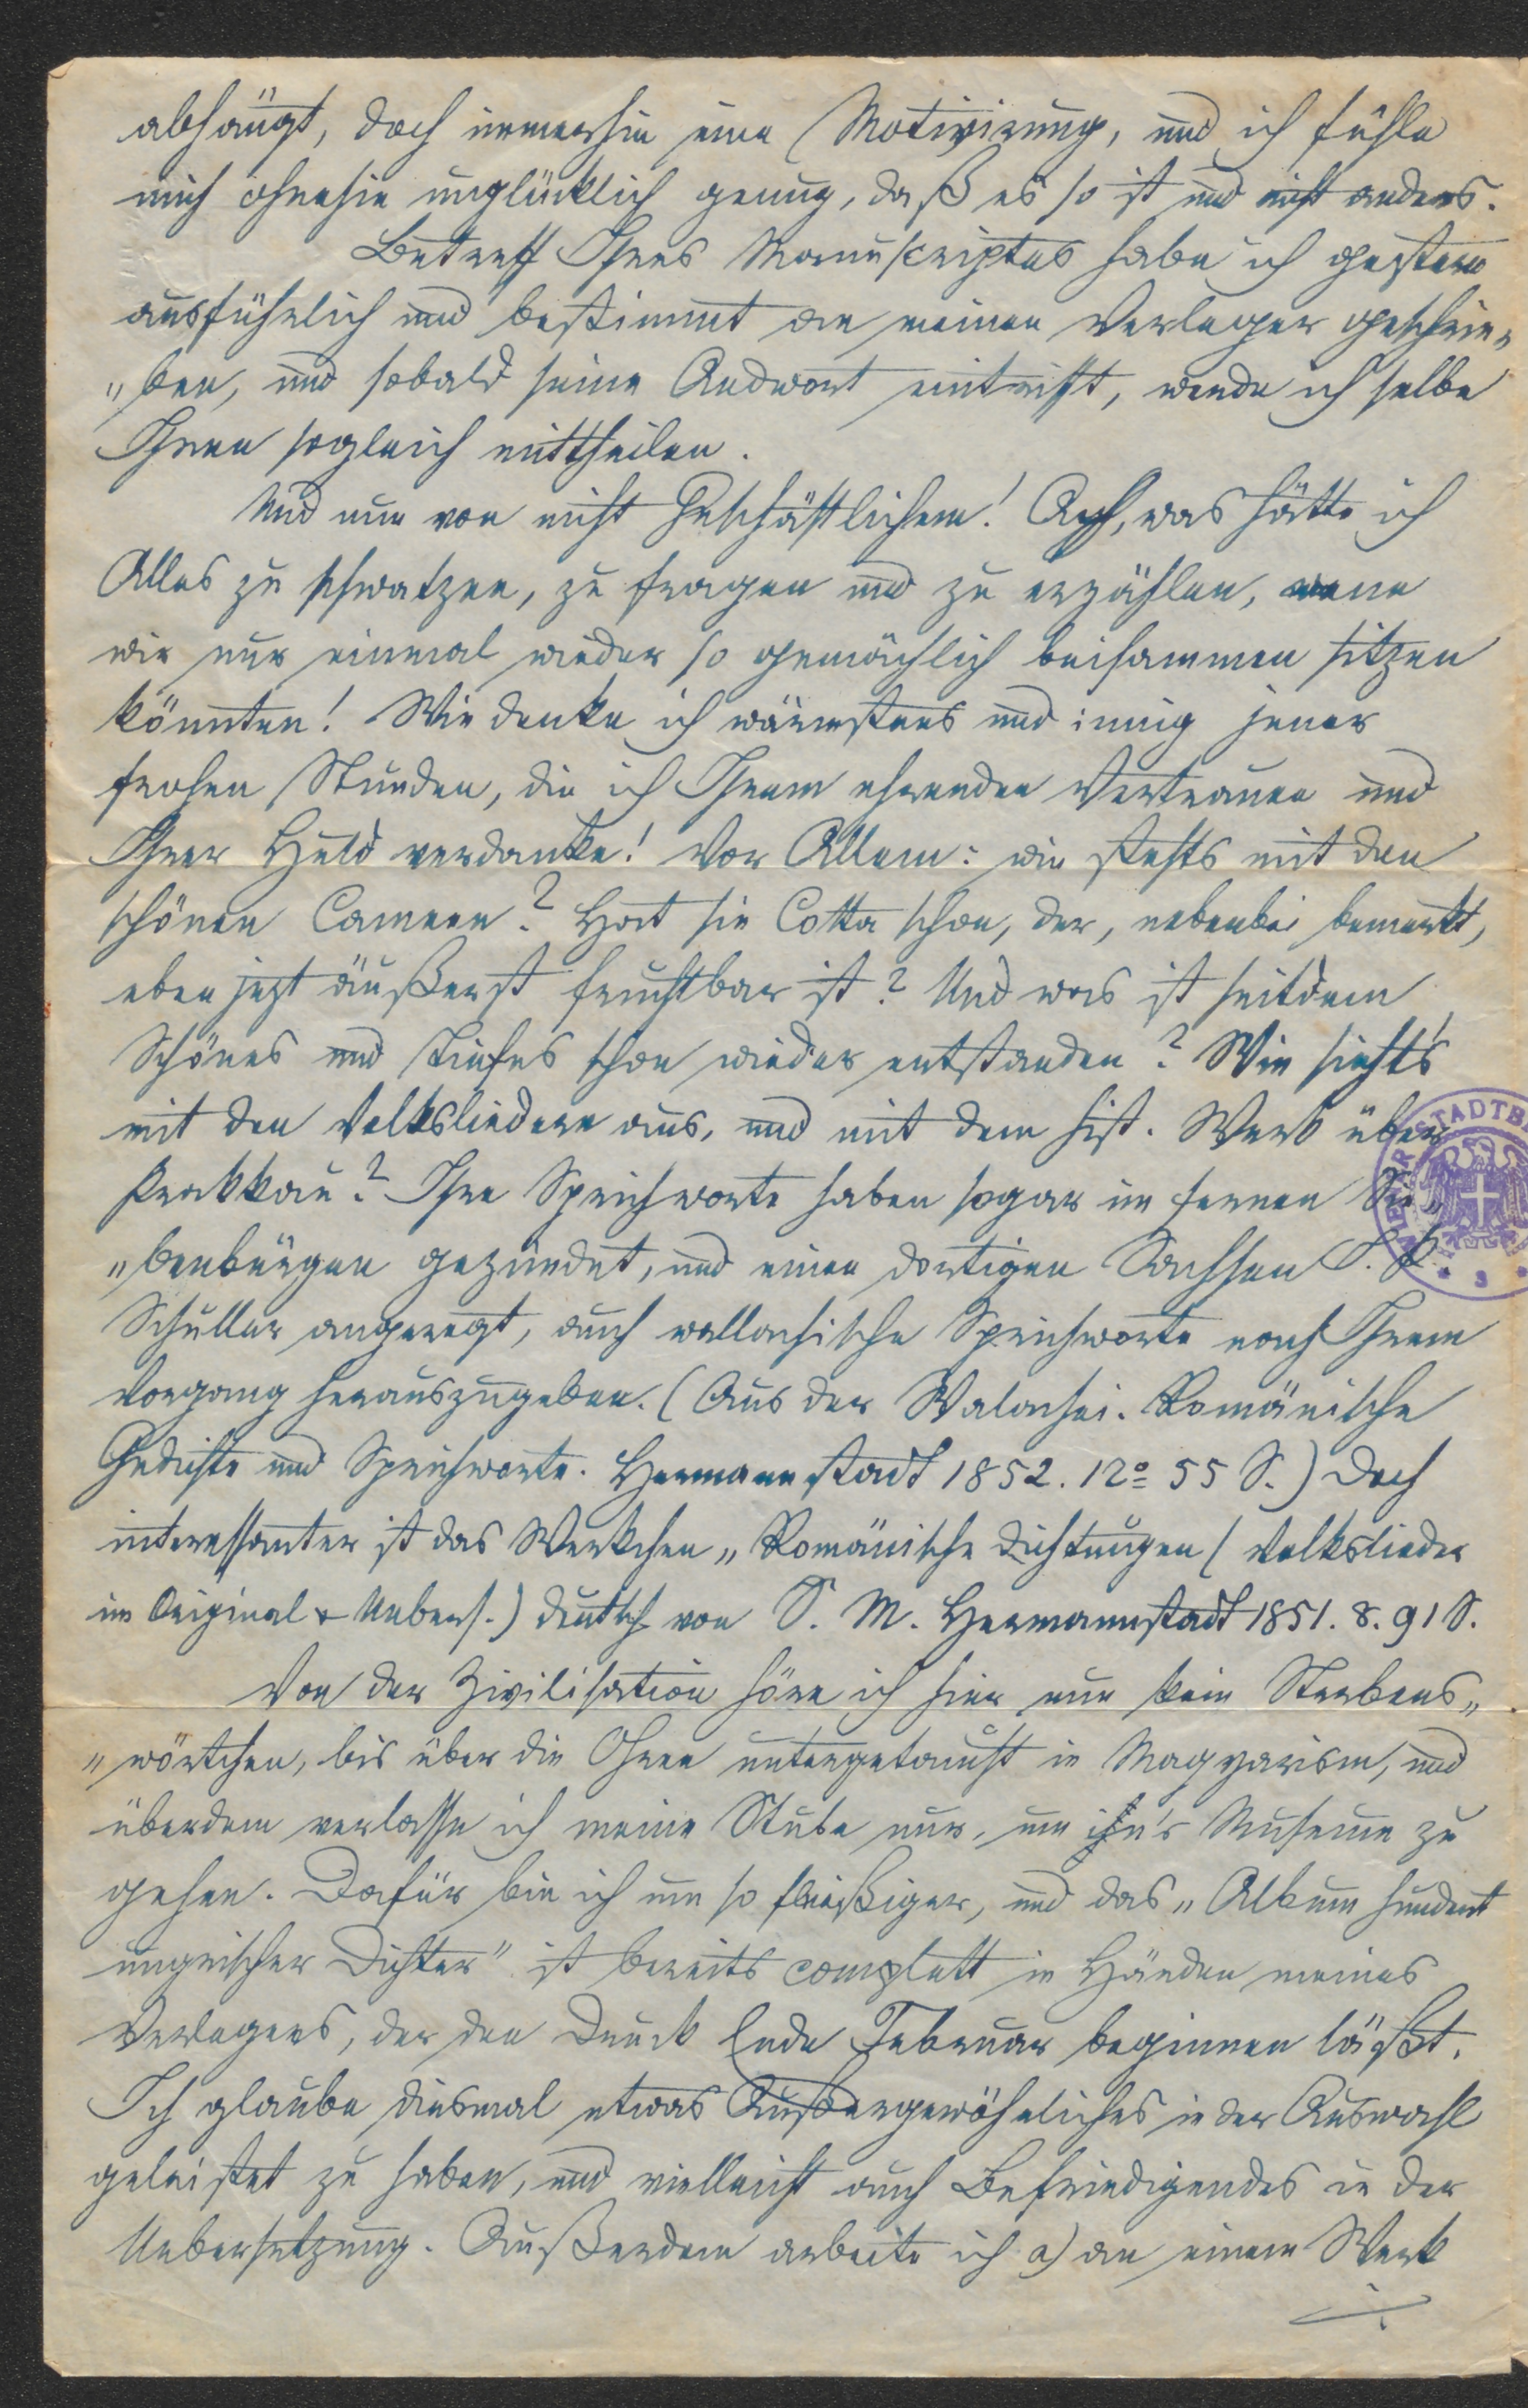 abhängt, doch immerhin eine Motivirung, und ich fühle
mich ohnehin unglücklich genug, daß es so ist und nicht anders.
Betreff Ihres Manuscriptes habe ich gestern
ausführlich und bestimmt an meinen Verleger geschrie„
„ben, und sobald seine Andwort eintrifft, werde ich selbe
Ihnen sogleich mittheilen.
Und nun von nicht Geschäftlichem! Ach, was hätte ich
Alles zu schwatzen, zu fragen und zu erzählen, wenn
wir nur einmal wieder so gemächlich beisammen sitzen
könnten! Wie denke ich wärmstens und innig jener
frohen Stunden, die ich Ihrem ehrenden Vertrauen und
Ihrer Huld verdanke! Vor Allem: wie stehts mit den
schönen Cameen? Hat sie Cotta schon, der, nebenbei bemerkt,
eben jezt äußerst fruchtbar ist? Und was ist seitdem
Schönes und Tiefes schon wieder entstanden? Wie sieht's
mit den Volksliedern aus, und mit dem hist. Werk über
Krakkau? Ihre Sprichworte haben sogar im fernen Sie„
„benbürgen gezündet, und einen dortigen Sachsen
Schuller angeregt, auch wallachische Sprichworte nach Ihrem
Vorgang herauszugeben. (Aus der Walachei. Romänische
Gedichte und Sprichworte. Hermannstadt 1852. 12º 55 S.) Doch
interessanter ist das Werkchen „Romänische Dichtungen (Volkslieder
im Original & Uebers.) deutsch von S. M. Hermannstadt 1851. 8. 91 S.
Von der Zivilisation höre ich hier nun kein Sterbens„
„wörtchen, bis über die Ohren untergetaucht in Magyarism, und
überdem verlasse ich meine Stube nur, um in's Museum zu
gehen. Dafür bin ich um so fleißiger, und das „Album hundert
ungrischer Dichter" ist bereits complett in Händen meines
Verlegers, der den Druck Ende Februar beginnen läßt.
Ich glaube diesmal etwas Außergewöhnliches in der Auswahl
geleistet zu haben, und vielleicht auch Befriedigendes in der
Uebersetzung. Außerdem arbeite ich a) an einem Werk